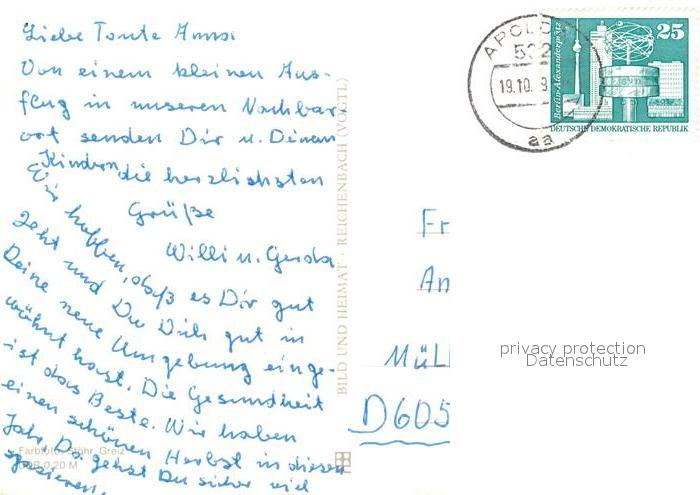 Liebe Tante Anna
Von einem kleinen Aus-
flug in unseren Nachbar-
ort senden Dir u. Deinen
Kindern die herzlichsten
Grüße
Willi u. Gerda
Wir hoffen, daß es Dir gut
geht und Du Dich gut in
Deine neue Umgebung einge-
wöhnt hast. Die Gesundheit
ist das Beste. Wir haben
einen schönen Herbst in diesem
Jahr. Da gehst Du sicher viel
spazieren.
Farbfoto: Stöhr, Greiz
0,20 M
BILD UND HEIMAT · REICHENBACH (VOGTL)
APOLDA
532
19.10.
aa
25
Berlin-Alexanderplatz
DEUTSCHE DEMOKRATISCHE REPUBLIK
Fr
An
Müll
D605
privacy protection
Datenschutz